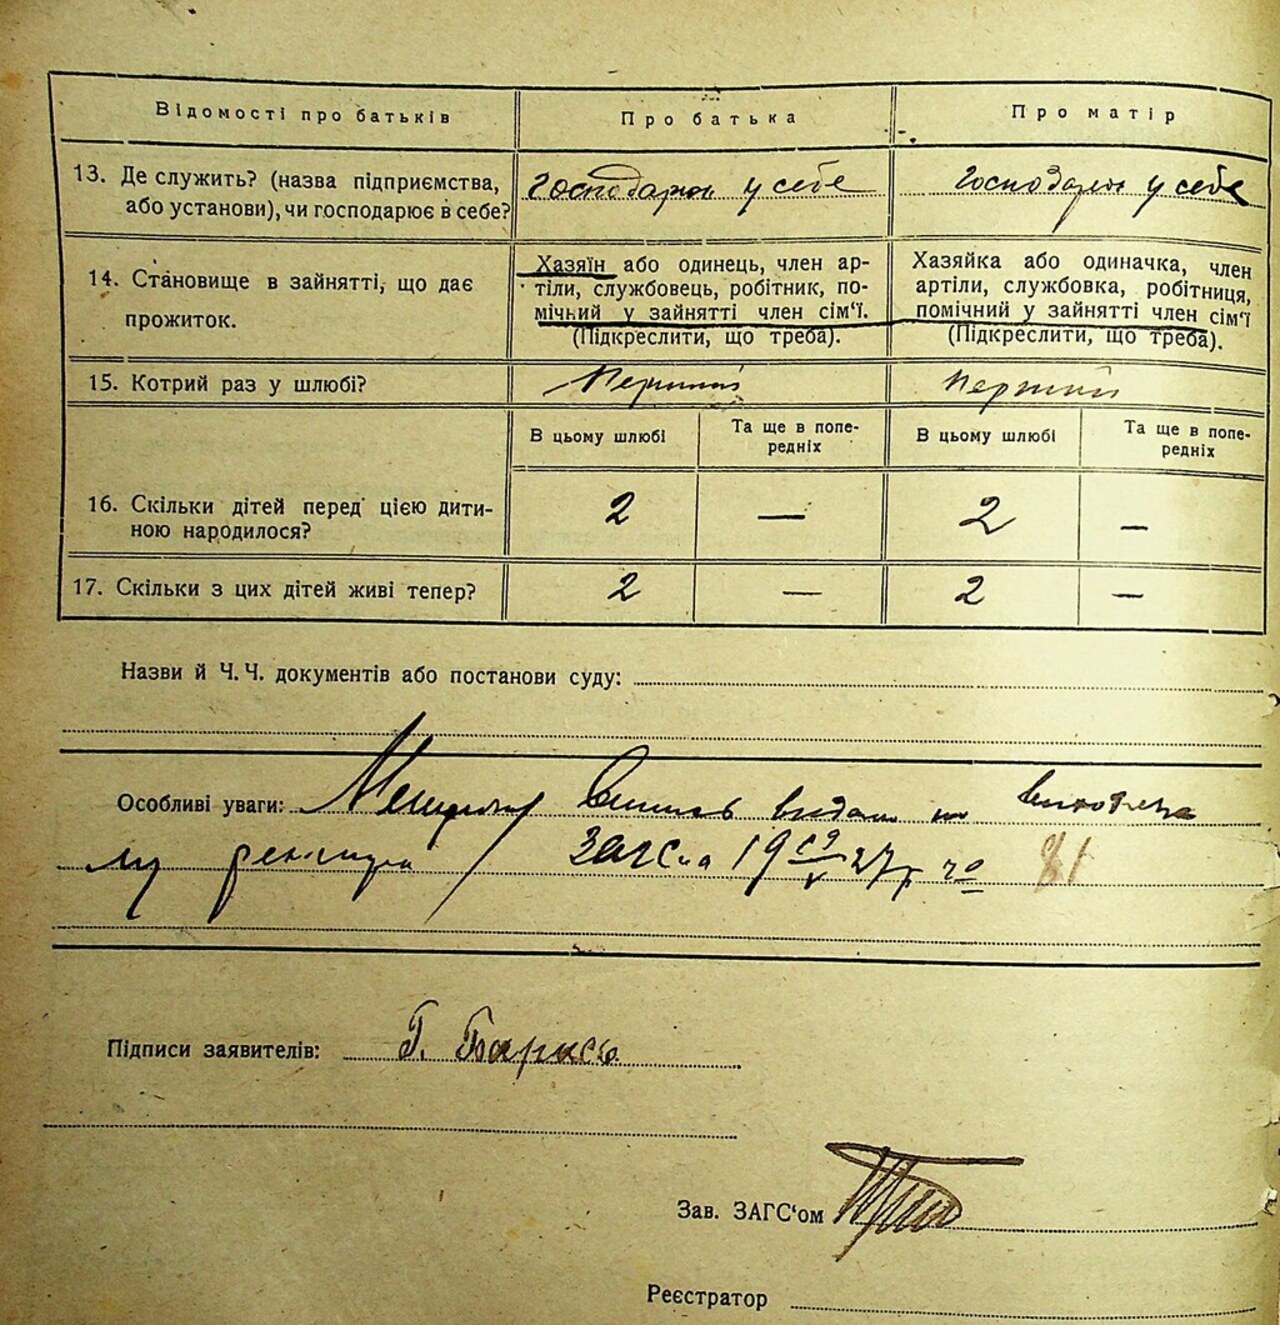 Відомості про батьків Про батька Про матір
13. Де служить? (назва підприємства, або установи), чи господарює в себе? господарює у себе господарює у себе
14. Становище в зайнятті, що дає прожиток.
Хазяїн або одинець, член ар-
тілі, службовець, робітник, по-
мічний у зайнятті член сім'ї.
(Підкреслити, що треба).
Хазяйка або одиначка, член
артіли, службовка, робітниця,
помічний у зайнятті член сім'ї
(Підкреслити, що треба).
15. Котрий раз у шлюбі? Перший Перший
В цьому шлюбі Та ще в попе-
редніх В цьому шлюбі Та ще в попе-
редніх
16. Скільки дітей перед цією дити-
ною народилося? 2 — 2 —
17. Скільки з цих дітей живі тепер? 2 — 2 —
Назви й Ч. Ч. документів або постанови суду:
Особливі уваги:
19 27 81
Підписи заявителів: Г.
Зав. ЗАГС'ом
Реєстратор